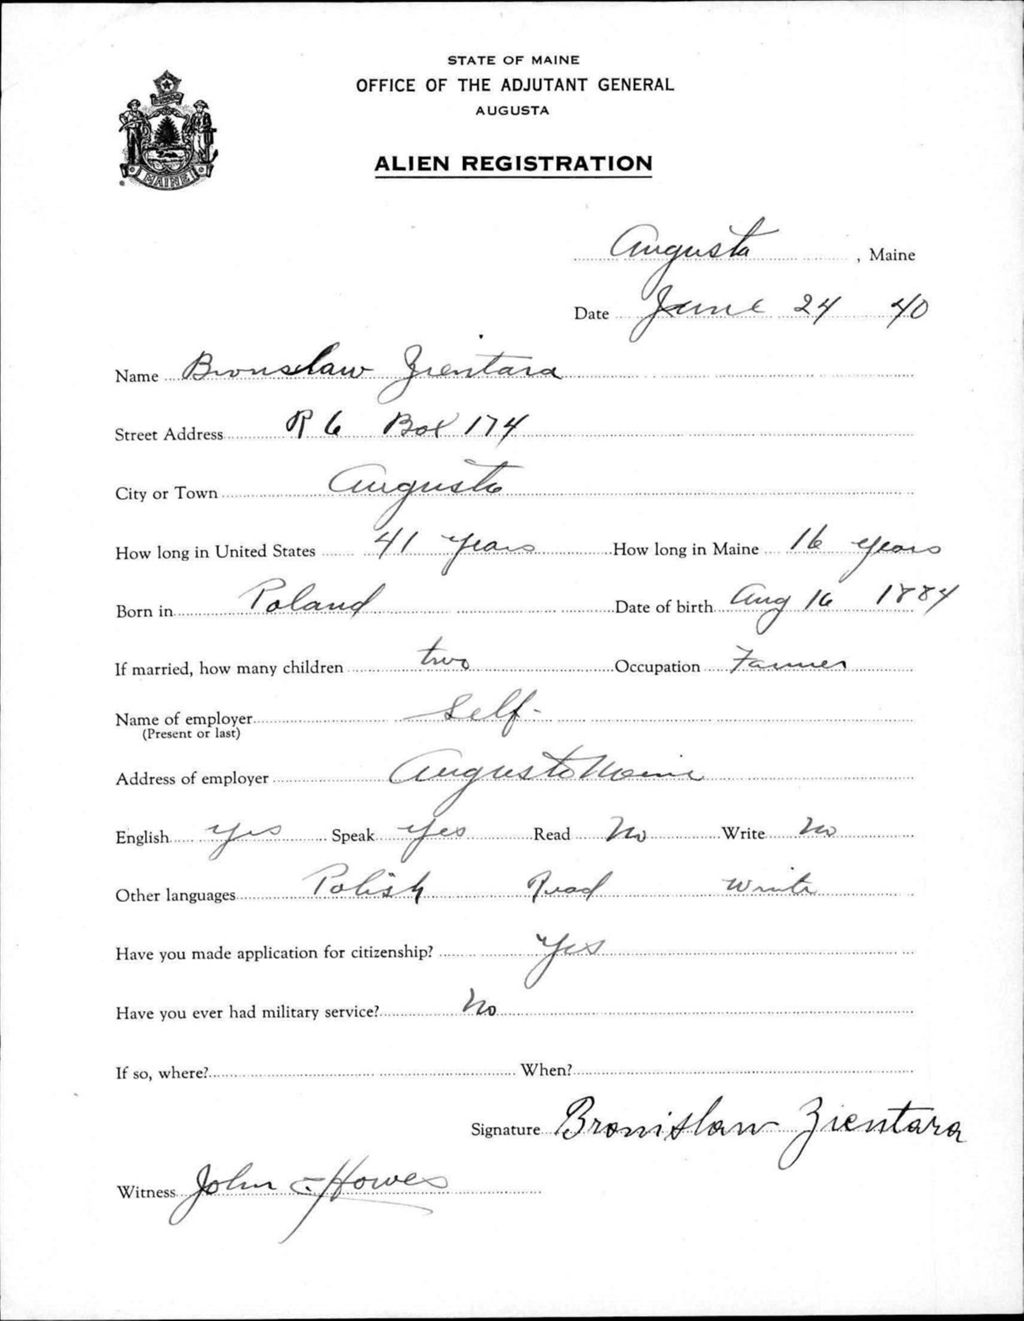 STATE OF MAINE
OFFICE OF THE ADJUTANT GENERAL
AUGUSTA
ALIEN REGISTRATION
MAINE
Augusta, Maine
Date June 24 40
Name Bronslaw Zientara
Street Address R 6 Box 174
City or Town Augusta
How long in United States 41 years How long in Maine 16 years
Born in Poland Date of birth Aug 16 1884
If married, how many children two Occupation Farmer
Name of employer Self-
(Present or last)
Address of employer Augusta Maine
English Yes Speak Yes Read No Write No
Other languages Polish Read Write
Have you made application for citizenship? Yes
Have you ever had military service? No
If so, where? When?
Signature Bronislaw Zientara
Witness John E Howes